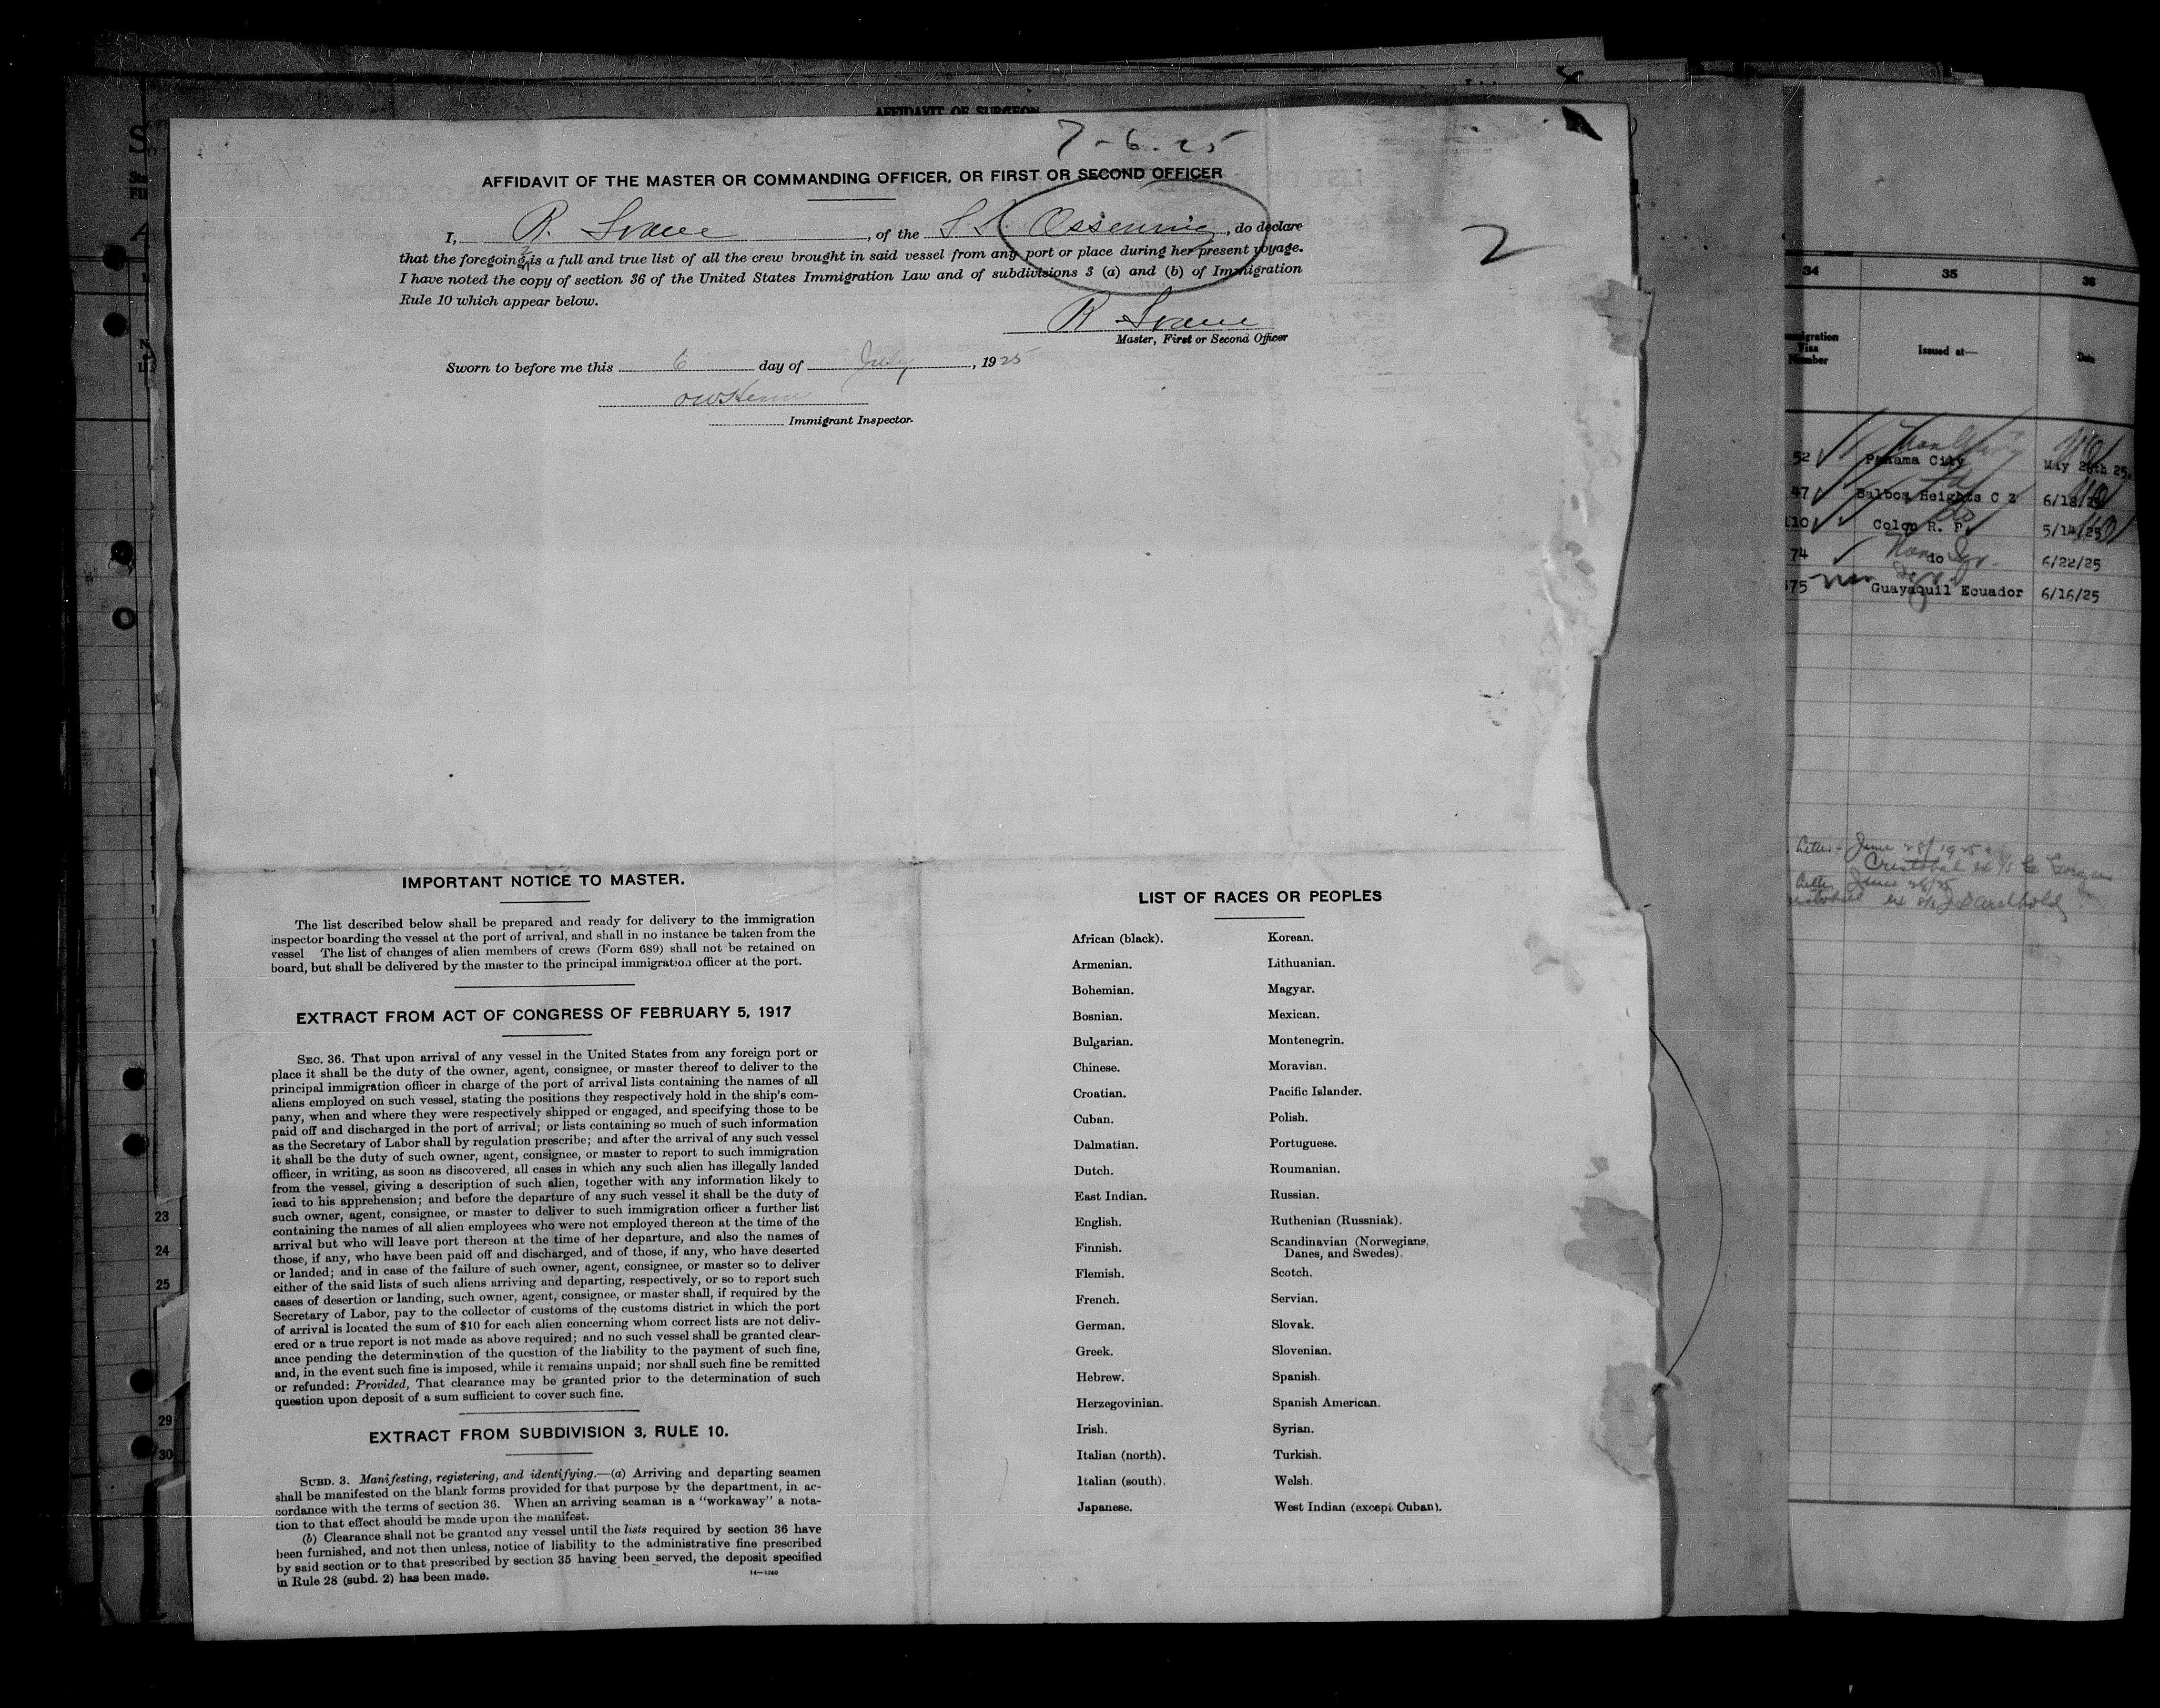 AFFIDAVIT OF SURGEON
7-6-25
AFFIDAVIT OF THE MASTER OR COMMANDING OFFICER, OR FIRST OR SECOND OFFICER
I, R. , of the S.S. , do declare
that the foregoing is a full and true list of all the crew brought in said vessel from any port or place during her present voyage.
I have noted the copy of section 36 of the United States Immigration Law and of subdivisions 3 (a) and (b) of Immigration
Rule 10 which appear below.
2
R
Master, First or Second Officer
Sworn to before me this 6 day of July, 1925
Immigrant Inspector.
IMPORTANT NOTICE TO MASTER.
The list described below shall be prepared and ready for delivery to the immigration
inspector boarding the vessel at the port of arrival, and shall in no instance be taken from the
vessel The list of changes of alien members of crews (Form 689) shall not be retained on
board, but shall be delivered by the master to the principal immigration officer at the port.
EXTRACT FROM ACT OF CONGRESS OF FEBRUARY 5, 1917
SEC. 36. That upon arrival of any vessel in the United States from any foreign port or
place it shall be the duty of the owner, agent, consignee, or master thereof to deliver to the
principal immigration officer in charge of the port of arrival lists containing the names of all
aliens employed on such vessel, stating the positions they respectively hold in the ship's com-
pany, when and where they were respectively shipped or engaged, and specifying those to be
paid off and discharged in the port of arrival; or lists containing so much of such information
as the Secretary of Labor shall by regulation prescribe; and after the arrival of any such vessel
it shall be the duty of such owner, agent, consignee, or master to report to such immigration
officer, in writing, as soon as discovered, all cases in which any such alien has illegally landed
from the vessel, giving a description of such alien, together with any information likely to
lead to his apprehension; and before the departure of any such vessel it shall be the duty of
such owner, agent, consignee, or master to deliver to such immigration officer a further list
containing the names of all alien employees who were not employed thereon at the time of the
arrival but who will leave port thereon at the time of her departure, and also the names of
those, if any, who have been paid off and discharged, and of those, if any, who have deserted
or landed; and in case of the failure of such owner, agent, consignee, or master so to deliver
either of the said lists of such aliens arriving and departing, respectively, or so to report such
cases of desertion or landing, such owner, agent, consignee, or master shall, if required by the
Secretary of Labor, pay to the collector of customs of the customs district in which the port
of arrival is located the sum of $10 for each alien concerning whom correct lists are not deliv-
ered or a true report is not made as above required; and no such vessel shall be granted clear-
ance pending the determination of the question of the liability to the payment of such fine,
and, in the event such fine is imposed, while it remains unpaid; nor shall such fine be remitted
or refunded: Provided, That clearance may be granted prior to the determination of such
question upon deposit of a sum sufficient to cover such fine.
EXTRACT FROM SUBDIVISION 3, RULE 10.
SUBD. 3. Manifesting, registering, and identifying.—(a) Arriving and departing seamen
shall be manifested on the blank forms provided for that purpose by the department, in ac-
cordance with the terms of section 36. When an arriving seaman is a "workaway" a nota-
tion to that effect should be made upon the manifest.
(b) Clearance shall not be granted any vessel until the lists required by section 36 have
been furnished, and not then unless, notice of liability to the administrative fine prescribed
by said section or to that prescribed by section 35 having been served, the deposit specified
in Rule 28 (subd. 2) has been made.
14—1240
LIST OF RACES OR PEOPLES
African (black). Korean.
Armenian. Lithuanian.
Bohemian. Magyar.
Bosnian. Mexican.
Bulgarian. Montenegrin.
Chinese. Moravian.
Croatian. Pacific Islander.
Cuban. Polish.
Dalmatian. Portuguese.
Dutch. Roumanian.
East Indian. Russian.
English. Ruthenian (Russniak).
Finnish. Scandinavian (Norwegians,
Danes, and Swedes).
Flemish. Scotch.
French. Servian.
German. Slovak.
Greek. Slovenian.
Hebrew. Spanish.
Herzegovinian. Spanish American.
Irish. Syrian.
Italian (north). Turkish.
Italian (south). Welsh.
Japanese. West Indian (except Cuban).
23
24
25
29
30
34 35 36
Visa
Number Issued at— Date
52 Panama City May 26th 25.
47 Balboa Heights C Z 6/18/25
110 Colon R. P. 5/14/25
74 do 6/22/25
575 Guayaquil Ecuador 6/16/25
June 28/1925
Cristobal ex
June 28/25